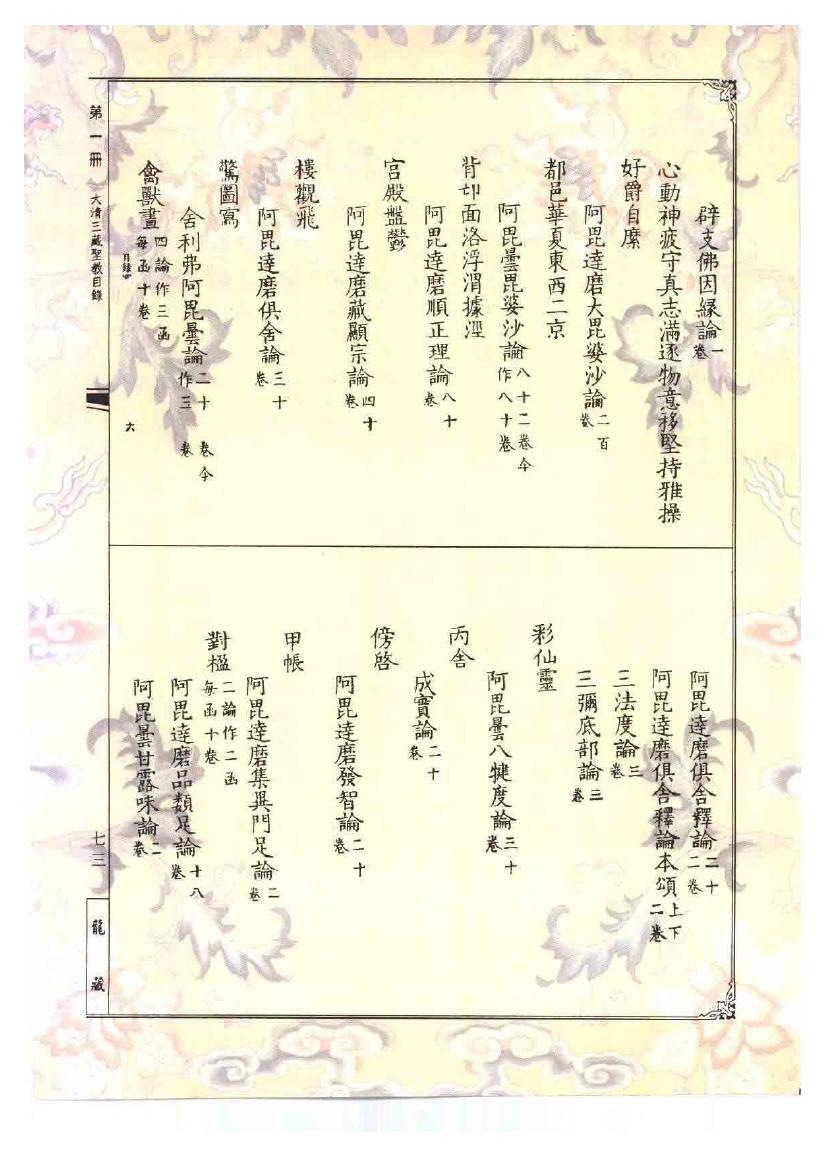 辟支佛因緣論一卷
心動神疲守真志滿逐物意移堅持雅操
好爵自縻
阿毘達磨大毘婆沙論二百卷
都邑華夏東西二京
阿毘曇毘婆沙論八十二卷今作八十卷
背邙面洛浮渭據涇
阿毘達磨順正理論八十卷
宮殿盤鬱
阿毘達磨藏顯宗論四十卷
樓觀飛
阿毘達磨俱舍論三十卷
驚圖寫
舍利弗阿毘曇論二十卷今作三卷
禽獸畫四論作三函每函十卷
阿毘達磨俱舍釋論二十二卷
阿毘達磨俱舍釋論本頌上下二卷
三法度論三卷
三彌底部論三卷
彩仙靈
阿毘曇八犍度論三十卷
丙舍
成實論二十卷
傍啓
阿毘達磨發智論二十卷
甲帳
阿毘達磨集異門足論二卷
對楹二論作二函每函十卷
阿毘達磨品類足論十八卷
阿毘曇甘露味論二卷
第一冊 大清三藏聖教目錄
六
七三
龍藏